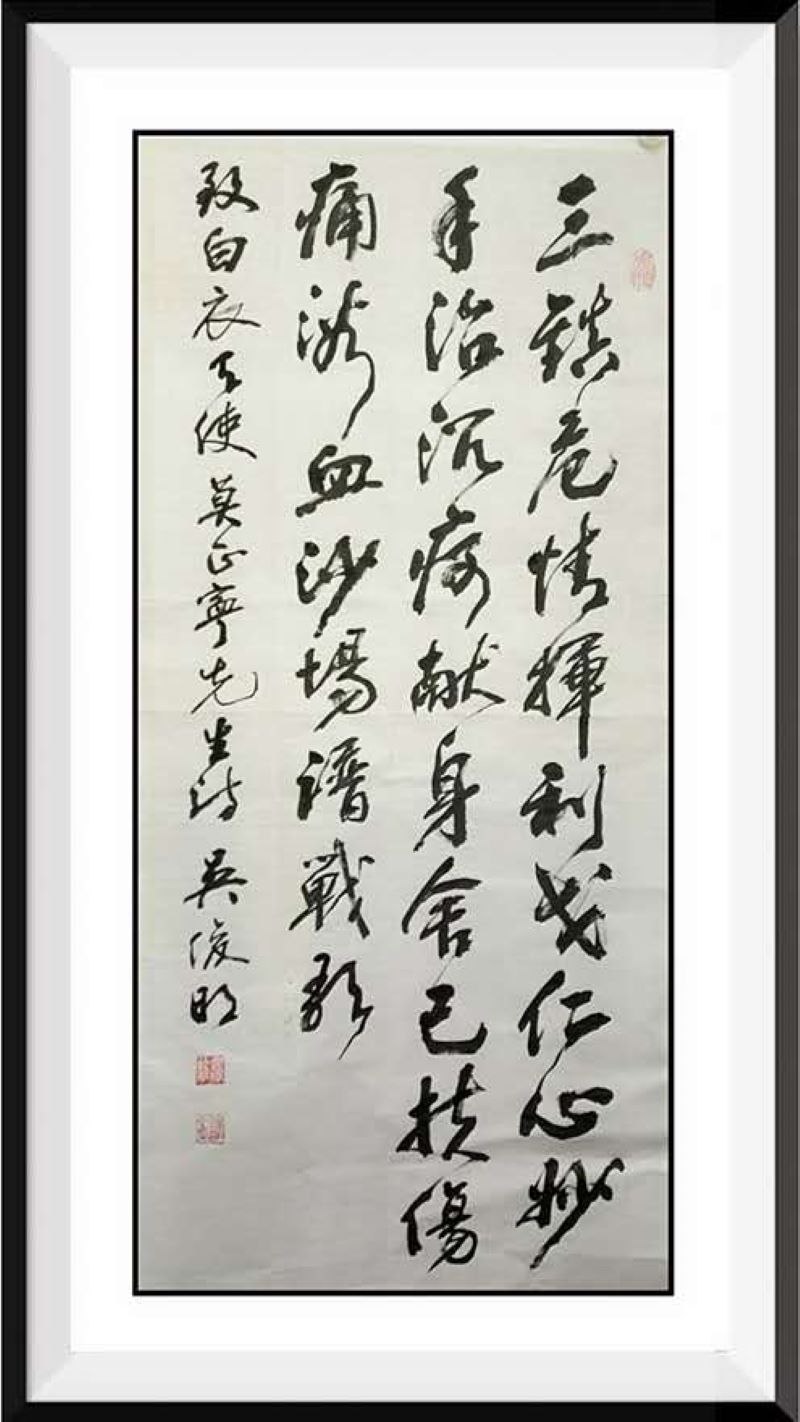 三鎮危情揮利戈仁心妙
手治沉疴献身舍己扶傷
痛血沙場譜戰歌
致白衣天使莫正寧先生詩 吴俊明